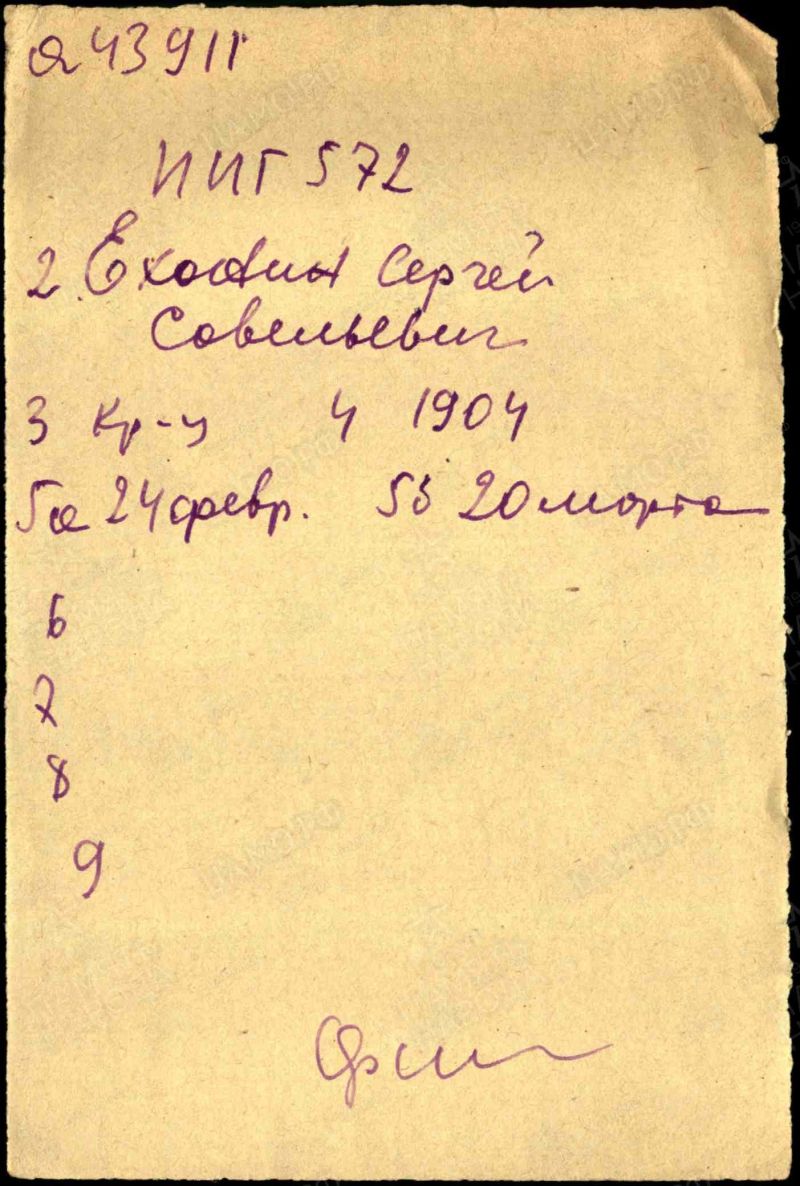 а43911
ППГ 572
2. Сергей
Совельевич
3 Кр-ц 4 1904
5а 24 февр. 5б 20 марта
6
7
8
9